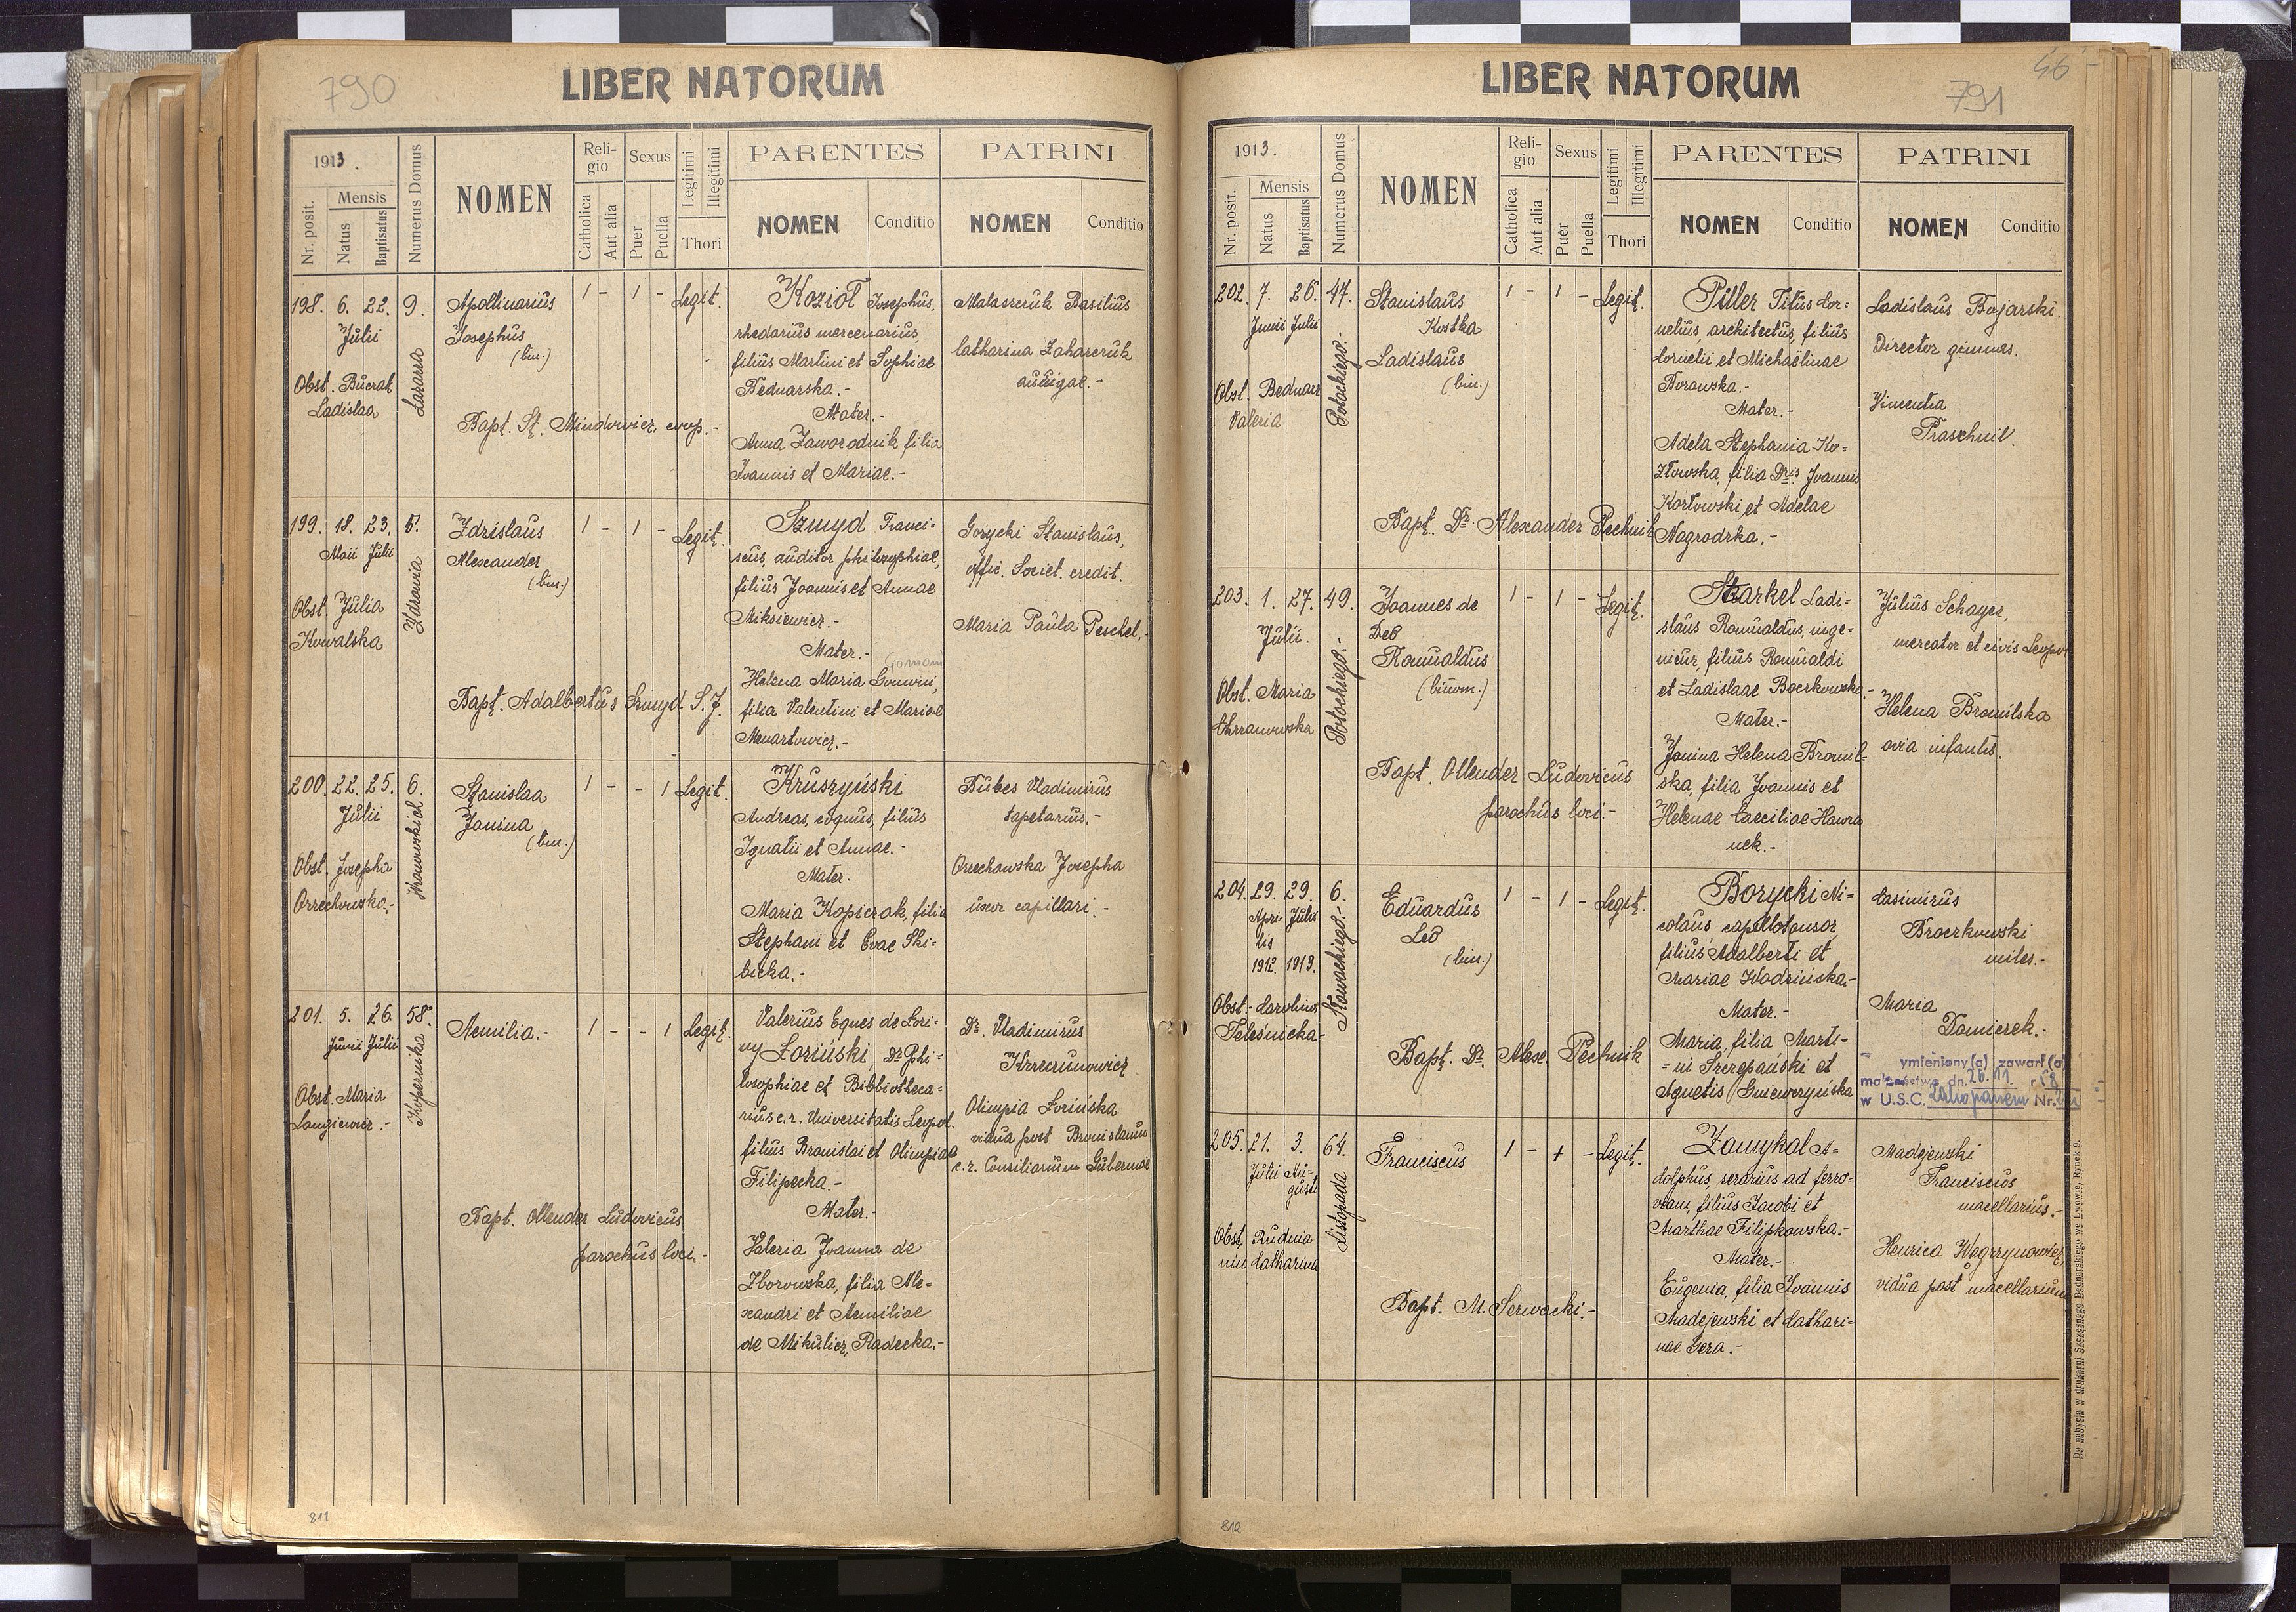 790
LIBER NATORUM
1913.
Nr. posit.
Mensis
Natus
Baptisatus
Numerus Domus
NOMEN
Religio
Catholica
Aut alia
Sexus
Puer
Puella
Legitimi
Illegitimi
Thori
PARENTES
NOMEN
Conditio
PATRINI
NOMEN
Conditio
198. 6. 22. 9.
Julii
Obst. Bucrat
Ladislaa
Lazarza
Apollinarius
Josephus
(bin.)
Bapt. St. Mindowicz, coop.-
1 - 1 - Legit.
Kozioł Josephus,
rhedarius mercenarius,
filius Martini et Sophiae
Bednarska.-
Mater.-
Anna Zaworodnik filia
Joannis et Mariae.-
Malaszczuk Basilius
Catharina Zaharczuk
aurigae.-
199. 18. 23. 5.
Maii Julii
Obst. Julia
Kowalska
Zdrowia
Zdzislaus
Alexander
(bin.)
Bapt. Adalbertus Szmyd S.J.
1 - 1 - Legit.
Szmyd Franci-
scus, auditor philosophiae,
filius Joannis et Annae
Miksiewicz.-
Mater.-
Helena Maria
filia Valentini et Mariae
Menartowicz.-
Gorycki Stanislaus,
offic. Societ. credit.
Maria Paula Peschel.-
200. 22. 25. 6.
Julii
Obst. Josepha
Orzechowska.-
Stanislaa
Janina
(bin.)
1 - - 1 Legit.
Kruszyński
Andreas, coquus, filius
Ignatii et Annae.-
Mater.
Maria Kopiczak, filia
Stephani et Evae Ski-
bicka.-
Bubes Vladimirus
tapetarius.-
Orzechowska Josepha
uxor capillari.-
201. 5. 26. 58.
Junii Julii
Obst. Maria
Langiewicz.-
Kopernika
Aemilia.-
Bapt. Ollender Ludovicus
parochus loci.-
1 - - 1 Legit.
Valerius Eques de Lozi-
ny Łoziński, Dr Phi-
losophiae et Bibliotheca-
rius c.r. Universitatis Leopol.
filius Bronislai et Olimpiae
Filipecka.-
Mater.-
Valeria Joanna de
Zborowska, filia Ale-
xandri et Aemiliae
de Mikulicz, Radecka.-
Dr. Vladimirus
Korczunowicz
Olimpia Łozińska
vidua post Bronislaum
c.r. Consiliarium Gubernae
811
46
791
LIBER NATORUM
1913.
Nr. posit.
Mensis
Natus
Baptisatus
Numerus Domus
NOMEN
Religio
Catholica
Aut alia
Sexus
Puer
Puella
Legitimi
Illegitimi
Thori
PARENTES
NOMEN
Conditio
PATRINI
NOMEN
Conditio
202. 7. 26. 47.
Junii Julii
Obst. Bednarz
Valeria
Potockiego.
Stanislaus
Kostka
Ladislaus
(bin.)
Bapt. Dr. Alexander Pechnik
1 - 1 - Legit.
Piller Titus Cor-
nelius, architectus, filius
Cornelii et Michaëlinae
Borowska.-
Mater.-
Adela Stephania Ko-
złowska, filia Dris Joannis
Kozłowski et Adelae
Nagrodzka.-
Ladislaus Bojarski,
Director gimnas.
Vincentia
Praschnil.
203. 1. 27. 49.
Julii.
Obst. Maria
Chrzanowska
Potockiego.-
Joannes de
Deo
Romualdus
(binom.)
Bapt. Ollender Ludovicus
parochus loci.-
1 - 1 - Legit.
Starkel Ladi-
slaus Romualdus, inge-
nieur, filius Romualdi
et Ladislaae Boczkowska.-
Mater.-
Janina Helena Bromil-
ska, filia Joannis et
Helenae Caeciliae Hawra
nek.-
Julius Schayer,
mercator et civis Leopol
Helena Bromilska
avia infantis.
204. 29. 29. 6.
Apri- Julii
lis
1912. 1913.
Obst. Carolina
Teleśnicka-
Nowackiego.-
Eduardus
Leo
(bin.)
Bapt. Dr. Alex. Pechnik
1 - 1 - Legit.
Borycki Ni-
colaus capillotonsor,
filius Adalberti et
Mariae Wodzińska.-
Mater.-
Maria, filia Marti-
ni Szczepański et
Agnetis Gniewczyńska
Casimirus
Broczkowski
miles.-
Maria
Domierek.-
ymieniony(a) zawarł(a)
małżeństwo dn. 26.11. r 58
w U.S.C. Zakopanem Nr.
205. 21. 3. 64.
Julii Au-
gusti
Obst. Rudnia
nin Catharina
Listopada
Franciscus
Bapt. M. Serwacki.-
1 - 1 - Legit.
Zamykal A-
dolphus, serarius ad ferro-
viam, filius Jacobi et
Marthae Filipkowska.-
Mater.-
Eugenia, filia Joannis
Madejewski et Cathari-
nae Gera.-
Madejewski
Franciscus
macellarius.-
Henrica Węgrzynowicz,
vidua post macellarium
Do nabycia w drukarni Szczęsnego Bednarskiego we Lwowie, Rynek 9.
812